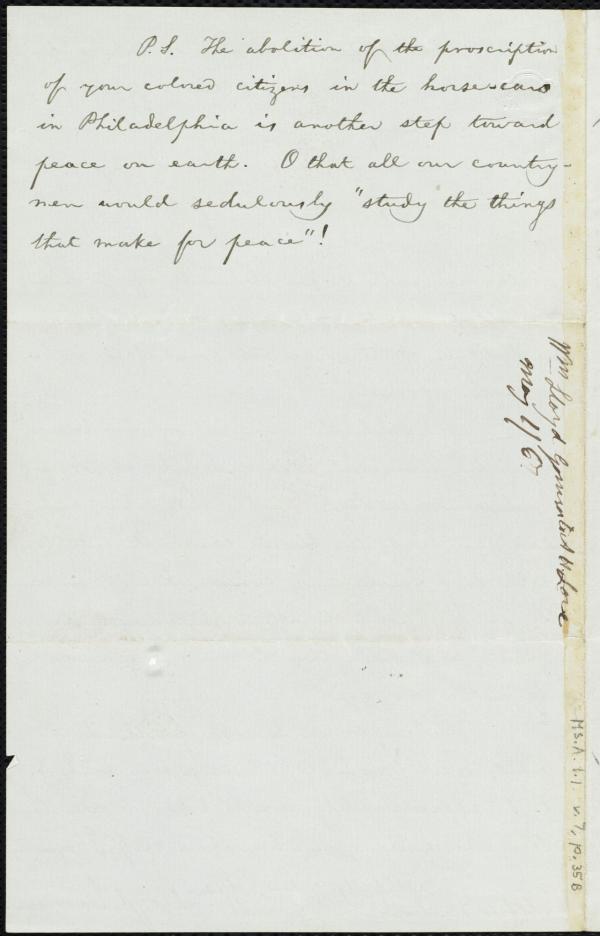 P.S. The abolition of the proscription
of your colored citizens in the horse-cars
in Philadelphia is another step toward
peace on earth. O that all our country-
men would sedulously "study the things
that make for peace"!
Wm Lloyd Garrison to A H Love
May 1/67
Ms.A.1.1 v.7, p.35B